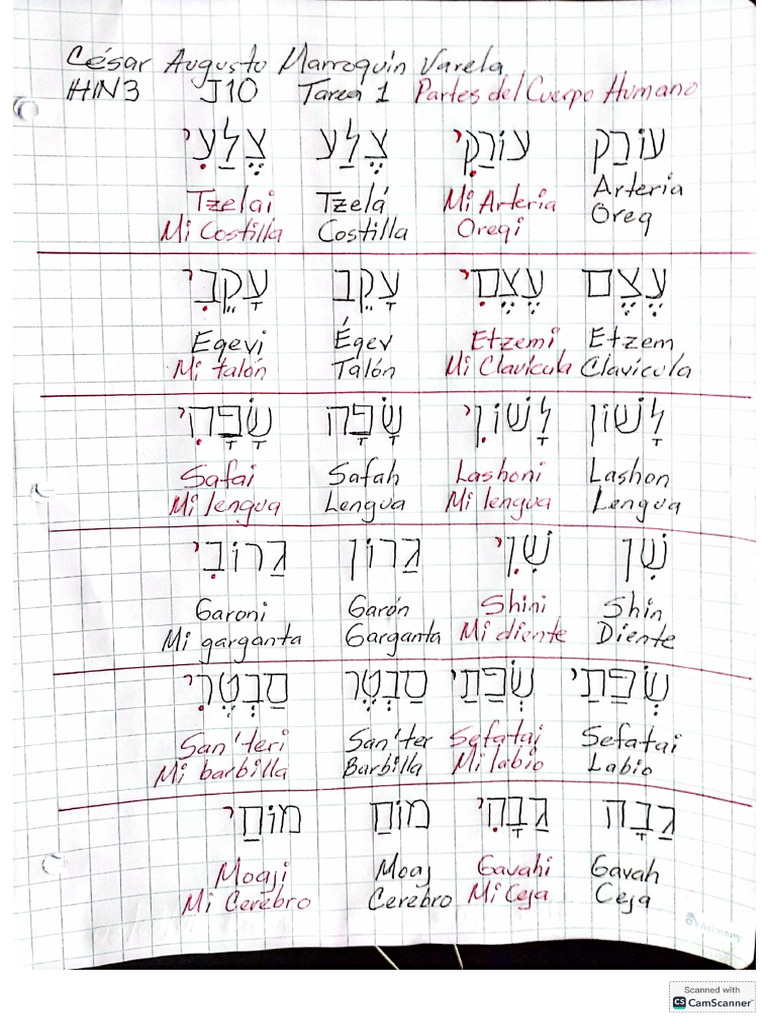 César Augusto Marroquin Varela
HIN3 J10 Tarea 1 Partes del Cuerpo Humano
עוֹרַק עוֹרַקִי צֶלַע צֶלַעִי
Arteria Mi Arteria Tzelá Tzelai
Oreq Oreqi Costilla Mi Costilla
עֶצֶם עֶצֶמִי עָקֵב עָקֵבִי
Etzem Etzemi Éqev Eqevi
Clavícula Mi Clavícula Talón Mi talón
לָשׁוֹן לָשׁוֹנִי שָׂפָה שָׂפָהִי
Lashon Lashoni Safah Safai
Lengua Mi lengua Lengua Mi lengua
שִׁן שִׁנִי גַרוֹן גַרוֹנִי
Shin Shini Garón Garoni
Diente Mi diente Garganta Mi garganta
שְׂפַתַי שְׂפַתַי סַנְטֶר סַנְטֶרִי
Sefatai Sefatai San'ter San'teri
Labio Mi labio Barbilla Mi barbilla
גַבָה גַבָהִי מוֹחַ מוֹחַי
Gavah Gavahi Moaj Moaji
Ceja Mi Ceja Cerebro Mi Cerebro
Scanned with
CS CamScanner